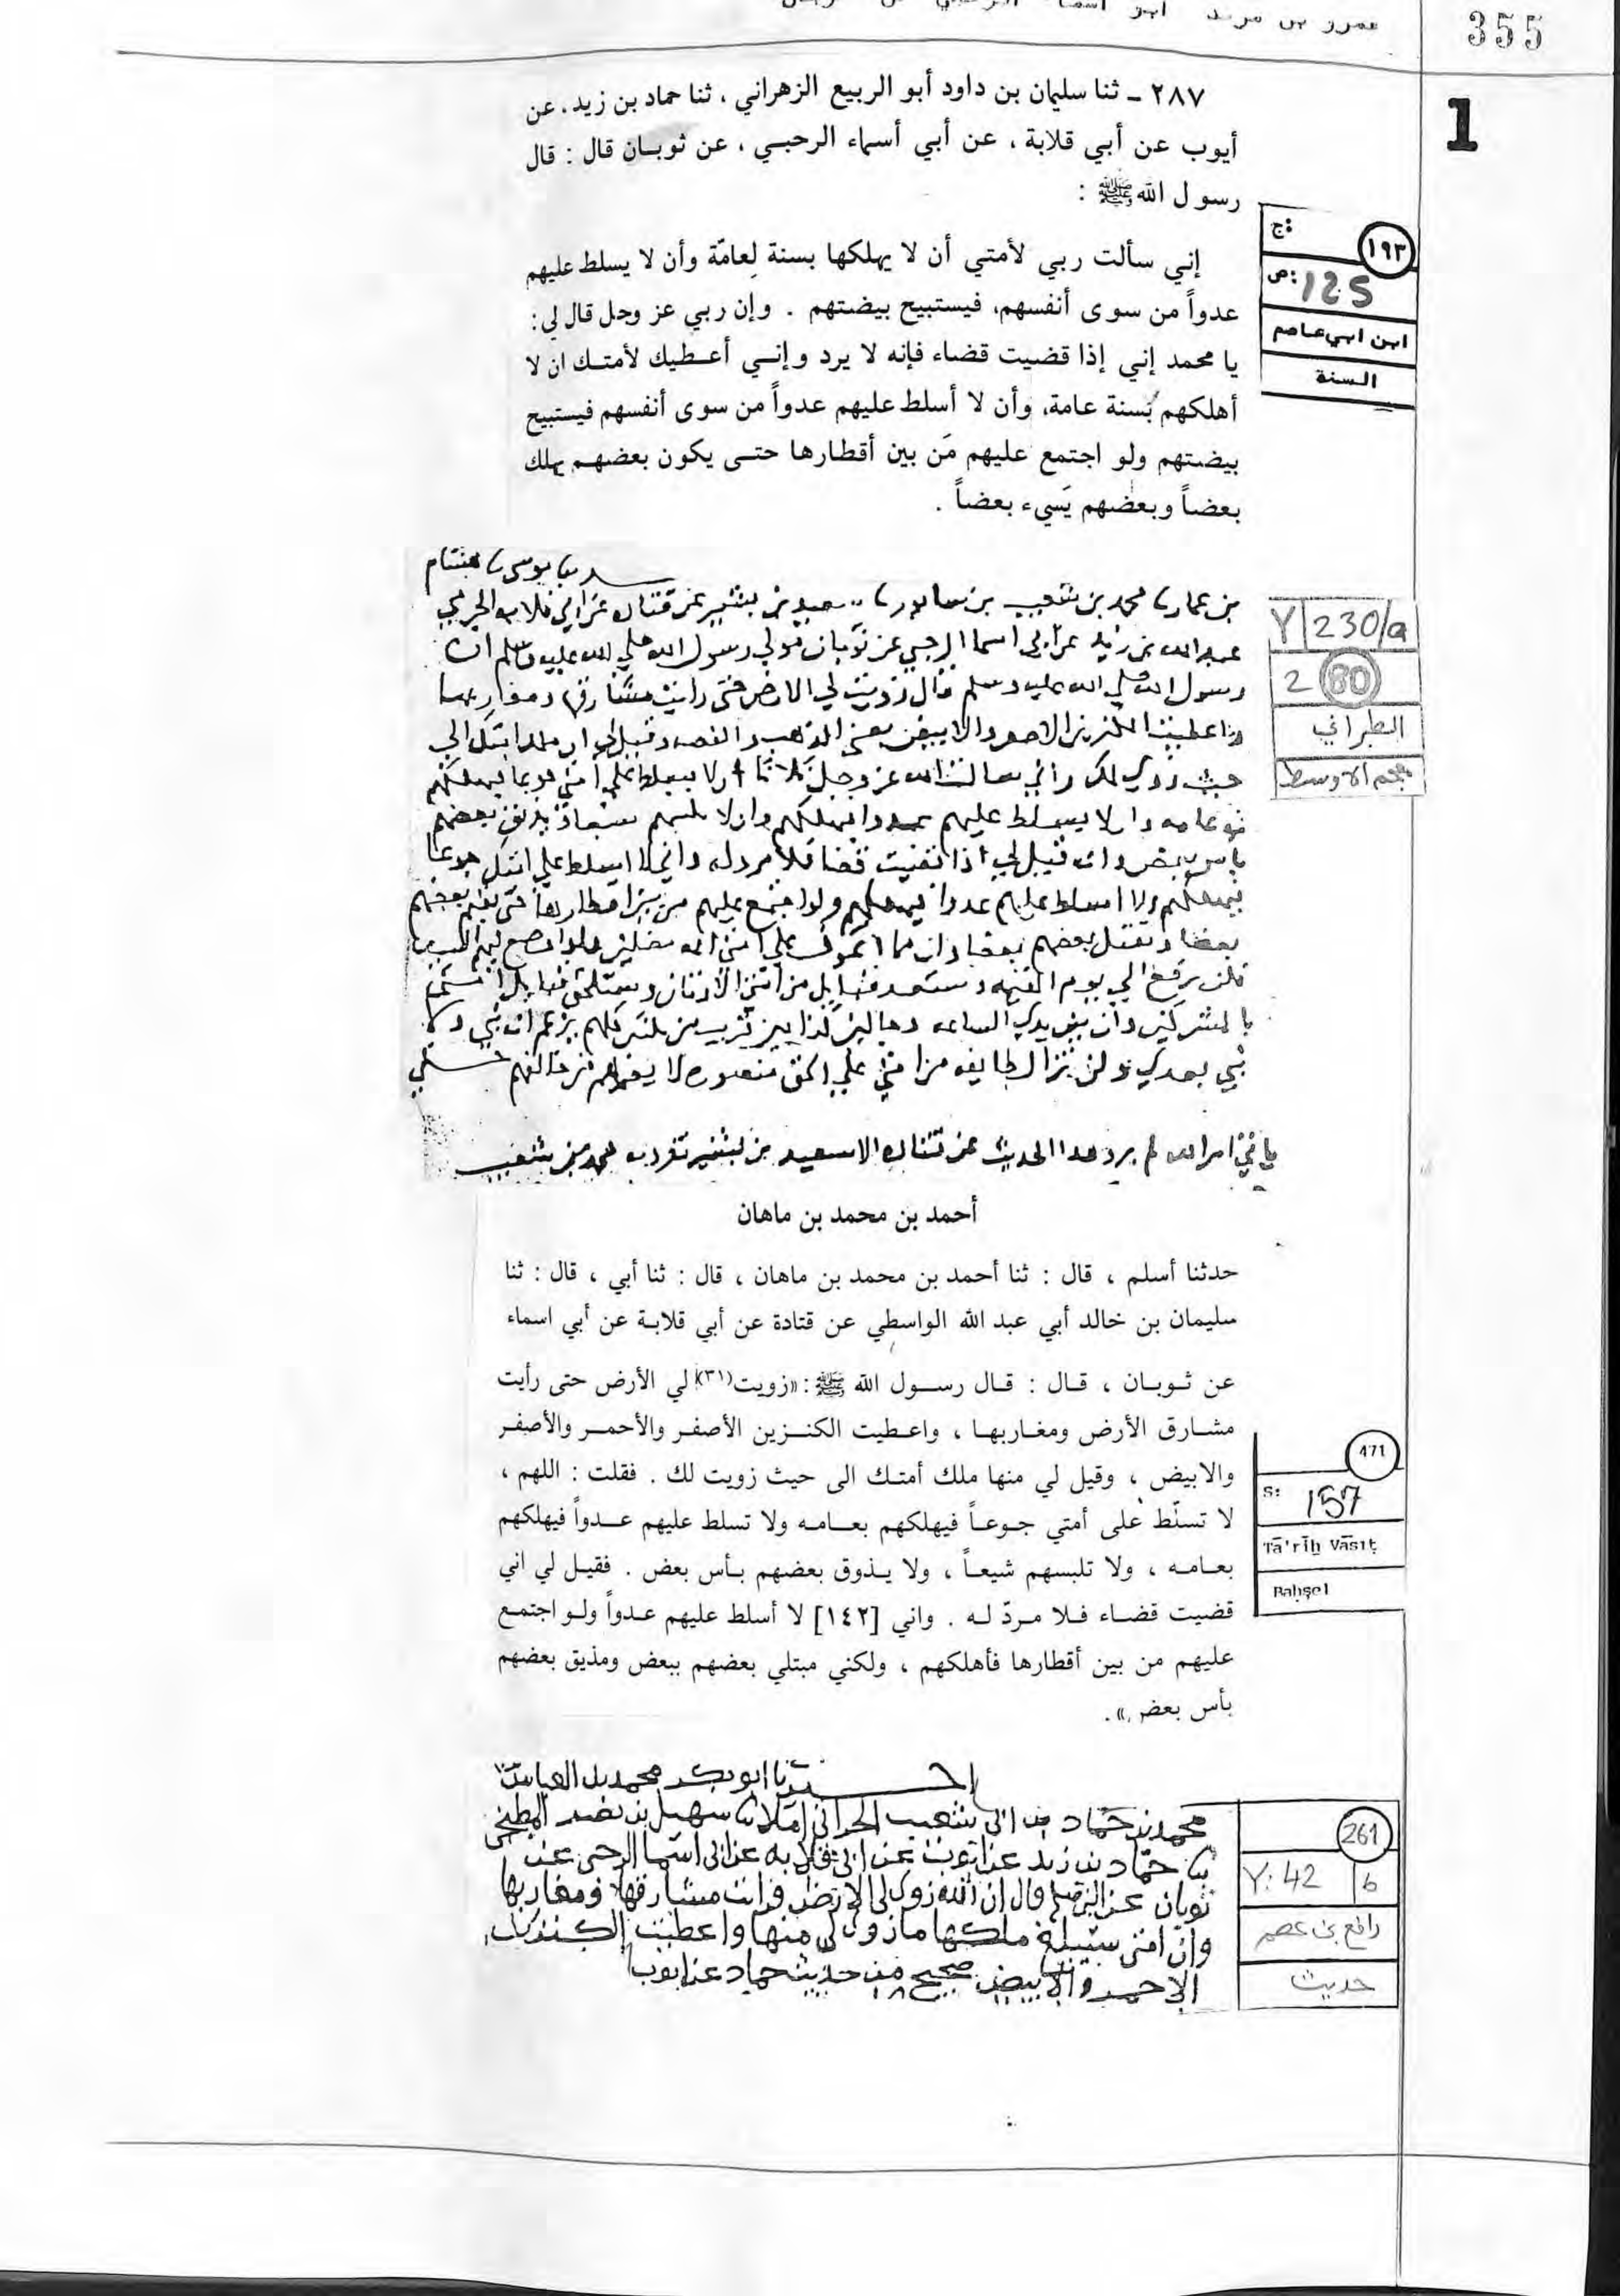 355
عمرو بن مرثد ابو اسماء
1
٢٨٧ - ثنا سليمان بن داود أبو الربيع الزهراني ، ثنا حماد بن زيد، عن
أيوب عن أبي قلابة ، عن أبي أسماء الرحبي ، عن ثوبان قال : قال
رسول الله ﷺ :
إني سألت ربي لأمتي أن لا يهلكها بسنة لِعامّة وأن لا يسلط عليهم
عدواً من سوى أنفسهم، فيستبيح بيضتهم . وإن ربي عز وجل قال لي:
يا محمد إني إذا قضيت قضاء فإنه لا يرد وإني أعطيك لأمتك ان لا
أهلكهم بسنة عامة، وأن لا أسلط عليهم عدواً من سوى أنفسهم فيستبيح
بيضتهم ولو اجتمع عليهم مَن بين أقطارها حتى يكون بعضهم يهلك
بعضاً وبعضهم يَسيء بعضاً .
١٩٣
ج:
ص: 125
ابن ابي عاصم
السنة
بن عمار محمد بن شعيب بن سابور سعيد بن بشير عن قتاده عن ابي قلابه الجرمي
عبد الله بن زيد عن ابي اسما الرحبي عن ثوبان مولي رسول الله صلي الله عليه وسلم ان
رسول الله صلي الله عليه وسلم قال زويت لي الارض حتي رايت مشارقها ومغاربها
واعطيت الكنزين الاحمر والابيض يعني الذهب والفضه وقيل لي ان ملك امتك الي
حيث زوي لك واني سالت الله عز وجل ثلاثا الا يسلط علي امتي جوعا فيهلكهم
به عامه والا يسلط عليهم عدوا فيهلكهم وان لا يلبسهم شيعا ويذيق بعضهم
باس بعض وانه قيل لي اذا قضيت قضا فلا مرد له واني لا اسلط علي امتك جوعا
فيهلكهم ولا اسلط عليهم عدوا فيهلكهم ولو اجتمع عليهم من بين اقطارها حتي بعضهم
بعضا ويقتل بعضهم بعضا وان مما اتخوف علي امتي ائمه مضلين واذا وضع فيهم السيف
فلن يرفع الي يوم القيمه وستعبد قبايل من امتي الاوثان وستلحق قبايل من امتي
بالمشركين وان بين يدي الساعه دجالين كذابين قريب من ثلثين كلهم يزعم انه نبي ولا
نبي بعدي ولن تزال طايفه من امتي علي الحق منصوره لا يضرهم من خالفهم حتي
ياتي امر الله لم يرو هذا الحديث عن قتاده الا سعيد بن بشير تفرد به محمد بن شعيب
Y 230/a
2 80
الطبراني
معجم الاوسط
أحمد بن محمد بن ماهان
حدثنا أسلم ، قال : ثنا أحمد بن محمد بن ماهان ، قال : ثنا أبي ، قال : ثنا
سليمان بن خالد أبي عبد الله الواسطي عن قتادة عن أبي قلابة عن أبي اسماء
عن ثوبان ، قال : قال رسول الله ﷺ : «زويت(٣١) لي الأرض حتى رأيت
مشارق الأرض ومغاربها ، واعطيت الكنزين الأصفر والأحمر والأصفر
والابيض ، وقيل لي منها ملك أمتك الى حيث زويت لك . فقلت : اللهم ،
لا تسلّط على أمتي جوعاً فيهلكهم بعامه ولا تسلط عليهم عدواً فيهلكهم
بعامه ، ولا تلبسهم شيعاً ، ولا يذوق بعضهم بأس بعض . فقيل لي اني
قضيت قضاء فلا مردّ له . واني [١٤٢] لا أسلط عليهم عدواً ولو اجتمع
عليهم من بين أقطارها فأهلكهم ، ولكني مبتلي بعضهم ببعض ومذيق بعضهم
بأس بعض» .
471
S: 157
Tā'rīḫ Vāsıṭ
Baḥşel
ابو بكر محمد بن العباس
محمد بن حماد بن ابي شعيب الحراني املا سهيل بن نصر المطبخي
حماد بن زيد عن ايوب عن ابي قلابه عن ابي اسما الرحبي عن
ثوبان عن النبي صلعم قال ان الله زوى لي الارض فرايت مشارقها ومغاربها
وان امتي سيبلغ ملكها ما زوى لي منها واعطيت الكنزين
الاحمر والابيض صحيح من حديث حماد عن ايوب
261
Y: 42 b
رافع بن عصم
حديث